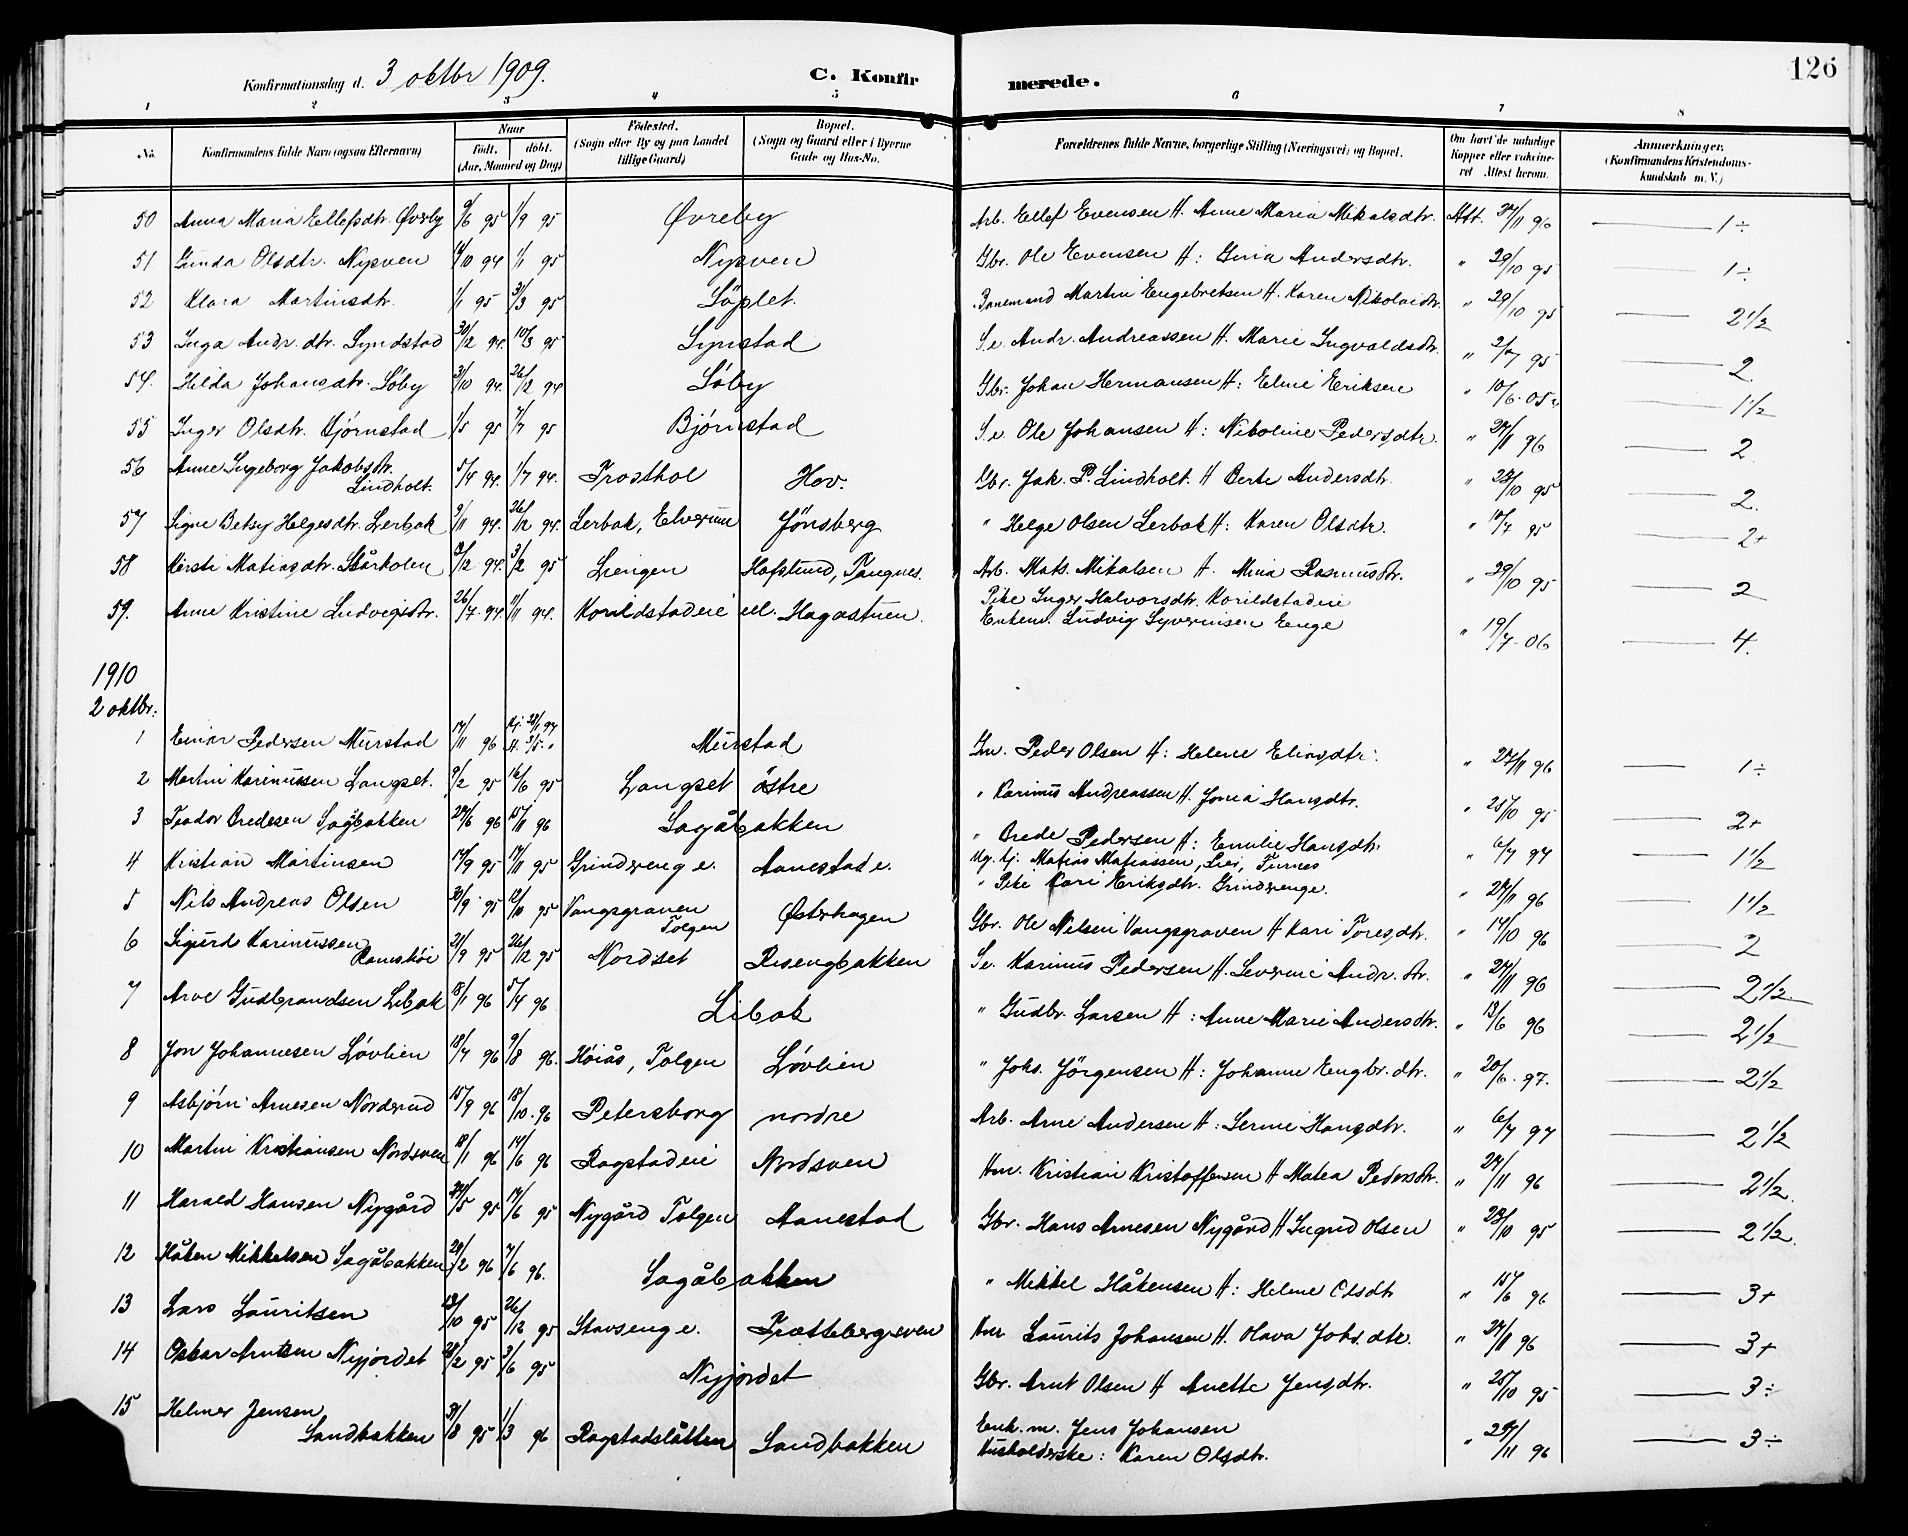 126
Konfirmationsdag d. 3 oktbr 1909. C. Konfirmerede.
1 2 3 4 5 6 7 8
No. Konfirmandens fulde Navn (ogsaa Efternavn) Naar født. døbt. (Aar, Maaned og Dag) Fødested. (Sogn eller By og paa Landet tillige Gaard) Bopæl. (Sogn og Gaard eller i Byerne Gade og Hus-No. Forældrenes fulde Navne, borgerlige Stilling (Næringsvei) og Bopæl. Om havt de naturlige Kopper eller vakcineret Attest herom. Anmærkninger. (Konfirmandens Kristendomskundskab m. V.)
50 Anna Maria Ellefsdtr. Øvreby 9/6 95 1/9 95 Øvreby Arb. Ellef Evensen H. Anne Maria Mikalsdtr. Att. 27/11 96 1÷
51 Gunda Olsdtr. Nysven 4/10 94 1/1 95 Nysven Gbr. Ole Evensen H: Gina Andersdtr. " 29/10 95 1÷
52 Klara Martinsdtr. 1/1 95 3/3 95 Søplet. Banemand Martin Engebretsen H. Karen Nikolaidtr. " 29/10 95 2 1/2
53 Inga Andr. dtr. Lyndstad 30/12 94. 10/3 95 Lynstad S.e. Andr. Andreassen H. Marie Ingvaldsdtr. " 2/7 95 2
54. Hilda Johansdtr. Løby 3/10 94. 26/12 94 Løby Gbr. Johan Hermansen H: Eline Eriksen " 10/6. 05 1 1/2
55 Inger Olsdtr. Bjørnstad 1/5 95 7/7 95 Bjørnstad S.e. Ole Johansen H: Nikoline Pedersdtr. " 27/11 96 2
56 Anne Ingeborg Jakobsdtr. Lindholt. 5/4 94. 1/7 94. Frosthol Hov. Gbr. Jak. P. Lindholt. H Berte Andersdtr. " 23/10 95 2.
57 Signe Betsy Helgesdtr. Lerbak 9/11 94. 26/12 94. Lerbak, Elverum Jønsberg " Helge Olsen Lerbak H: Karen Olsdtr. " 10/7 95 2+
58 Kirsti Matiasdtr. Stårkolen 3/12 94. 3/2 95 Liengen Hafslund, Tangnes. Arb. Mats. Mikalsen H. Mina Rasmusdtr. " 29/10 95 2
59. Anne Kristine Ludvigsdtr. 26/7 94. 11/11 94. Korildstadeie ell. Hagastuen. Pike Inger Halvorsdtr. Korildstadeie
Enkem. Ludvig Syverinsen Enge " 19/7 06 4.
1910
2 oktbr:
1 Einar Pedersen Murstad 17/11 96 Murstad Gm. Peder Olsen H: Helene Eliasdtr. " 27/11 96 1÷
2 Martin Karinussen Langset. 9/2 95 16/6 95 Langset østre " Karinus Andreassen H. Jonia Hansdtr. " 25/10 95 2+
3 Teodor Bredesen Sagåbakken 29/6 96 15/11 96 Sagåbakken " Brede Pedersen H: Emilie Hansdtr. " 6/7 97 1 1/2
4 Kristian Martinsen 17/9 95 17/11 95 Grindseng e. Aanestad e. Ug. kj. Matias Matiassen, Lier, Furnes
" Pike Kari Eriksdtr. Grindsenge. " 27/11 96 1 1/2
5 Nils Andreas Olsen 30/9 95 12/10 95 Vangsgraven Tolgen Østerhagen Gbr. Ole Nilsen Vangsgraven H Kari Toresdtr. " 14/10 96 2
6 Sigurd Karinussen Ramshøi 21/9 95 26/12 95 Nordset Risengbakken S.e. Karinus Pedersen H. Severine Andr. dtr. " 27/11 96 2 1/2
7 Arve Gudbrandsen Libak 18/1 96 5/4 96 Libak " Gudbr. Larsen H: Anne Marie Andersdtr. " 13/6 96 2 1/2
8 Jon Johannesen Løvlien 18/7 96 9/8 96. Høiås, Tolgen Løvlien " Johs. Jørgensen H: Johanne Engbr. dtr. " 20/6. 97. 2 1/2
9 Asbjørn Arnesen Nordsrud 15/9 96 18/10. 96 Petersborg nordre Arb. Arne Andersen H: Serine Hansdtr. " 6/7 97 2 1/2
10 Martin Kristiansen Nordsven 18/1 96 14/6 96 Ragstadeie Nordsven Hm. Kristian Kristoffersen H Matea Pedersdtr. " 27/11 96 2 1/2.
11 Harald Hansen Nygård 29/5 95 17/6 95 Nygård Tolgen Aanestad Gbr. Hans Arnesen Nygård H Ingrid Olsen " 23/10 95 2 1/2.
12 Håken Mikkelsen Sagåbakken 29/2 96 7/6 96. Sagåbakken " Mikkel Håkensen H: Helene Olsdtr " 15/6 96 3+
13 Lars Lauritsen 13/10 95 26/12 95 Stavseng e. Prættebergsven Hm Laurits Johansen H. Olava Johs. dtr. " 27/11 96 3+
14 Oskar Arntsen Nyjordet 28/2 95 3/6 95 Nyjordet Gbr. Arnt Olsen H Anette Jensdtr. " 25/10 95 3÷
15 Helmer Jensen Sandbakken 31/8 95 1/3 96 Ragstadslåtten Sandbakken Enk. m. Jens Johansen
Husholderske: Karen Olsdtr. " 27/11 96 3÷